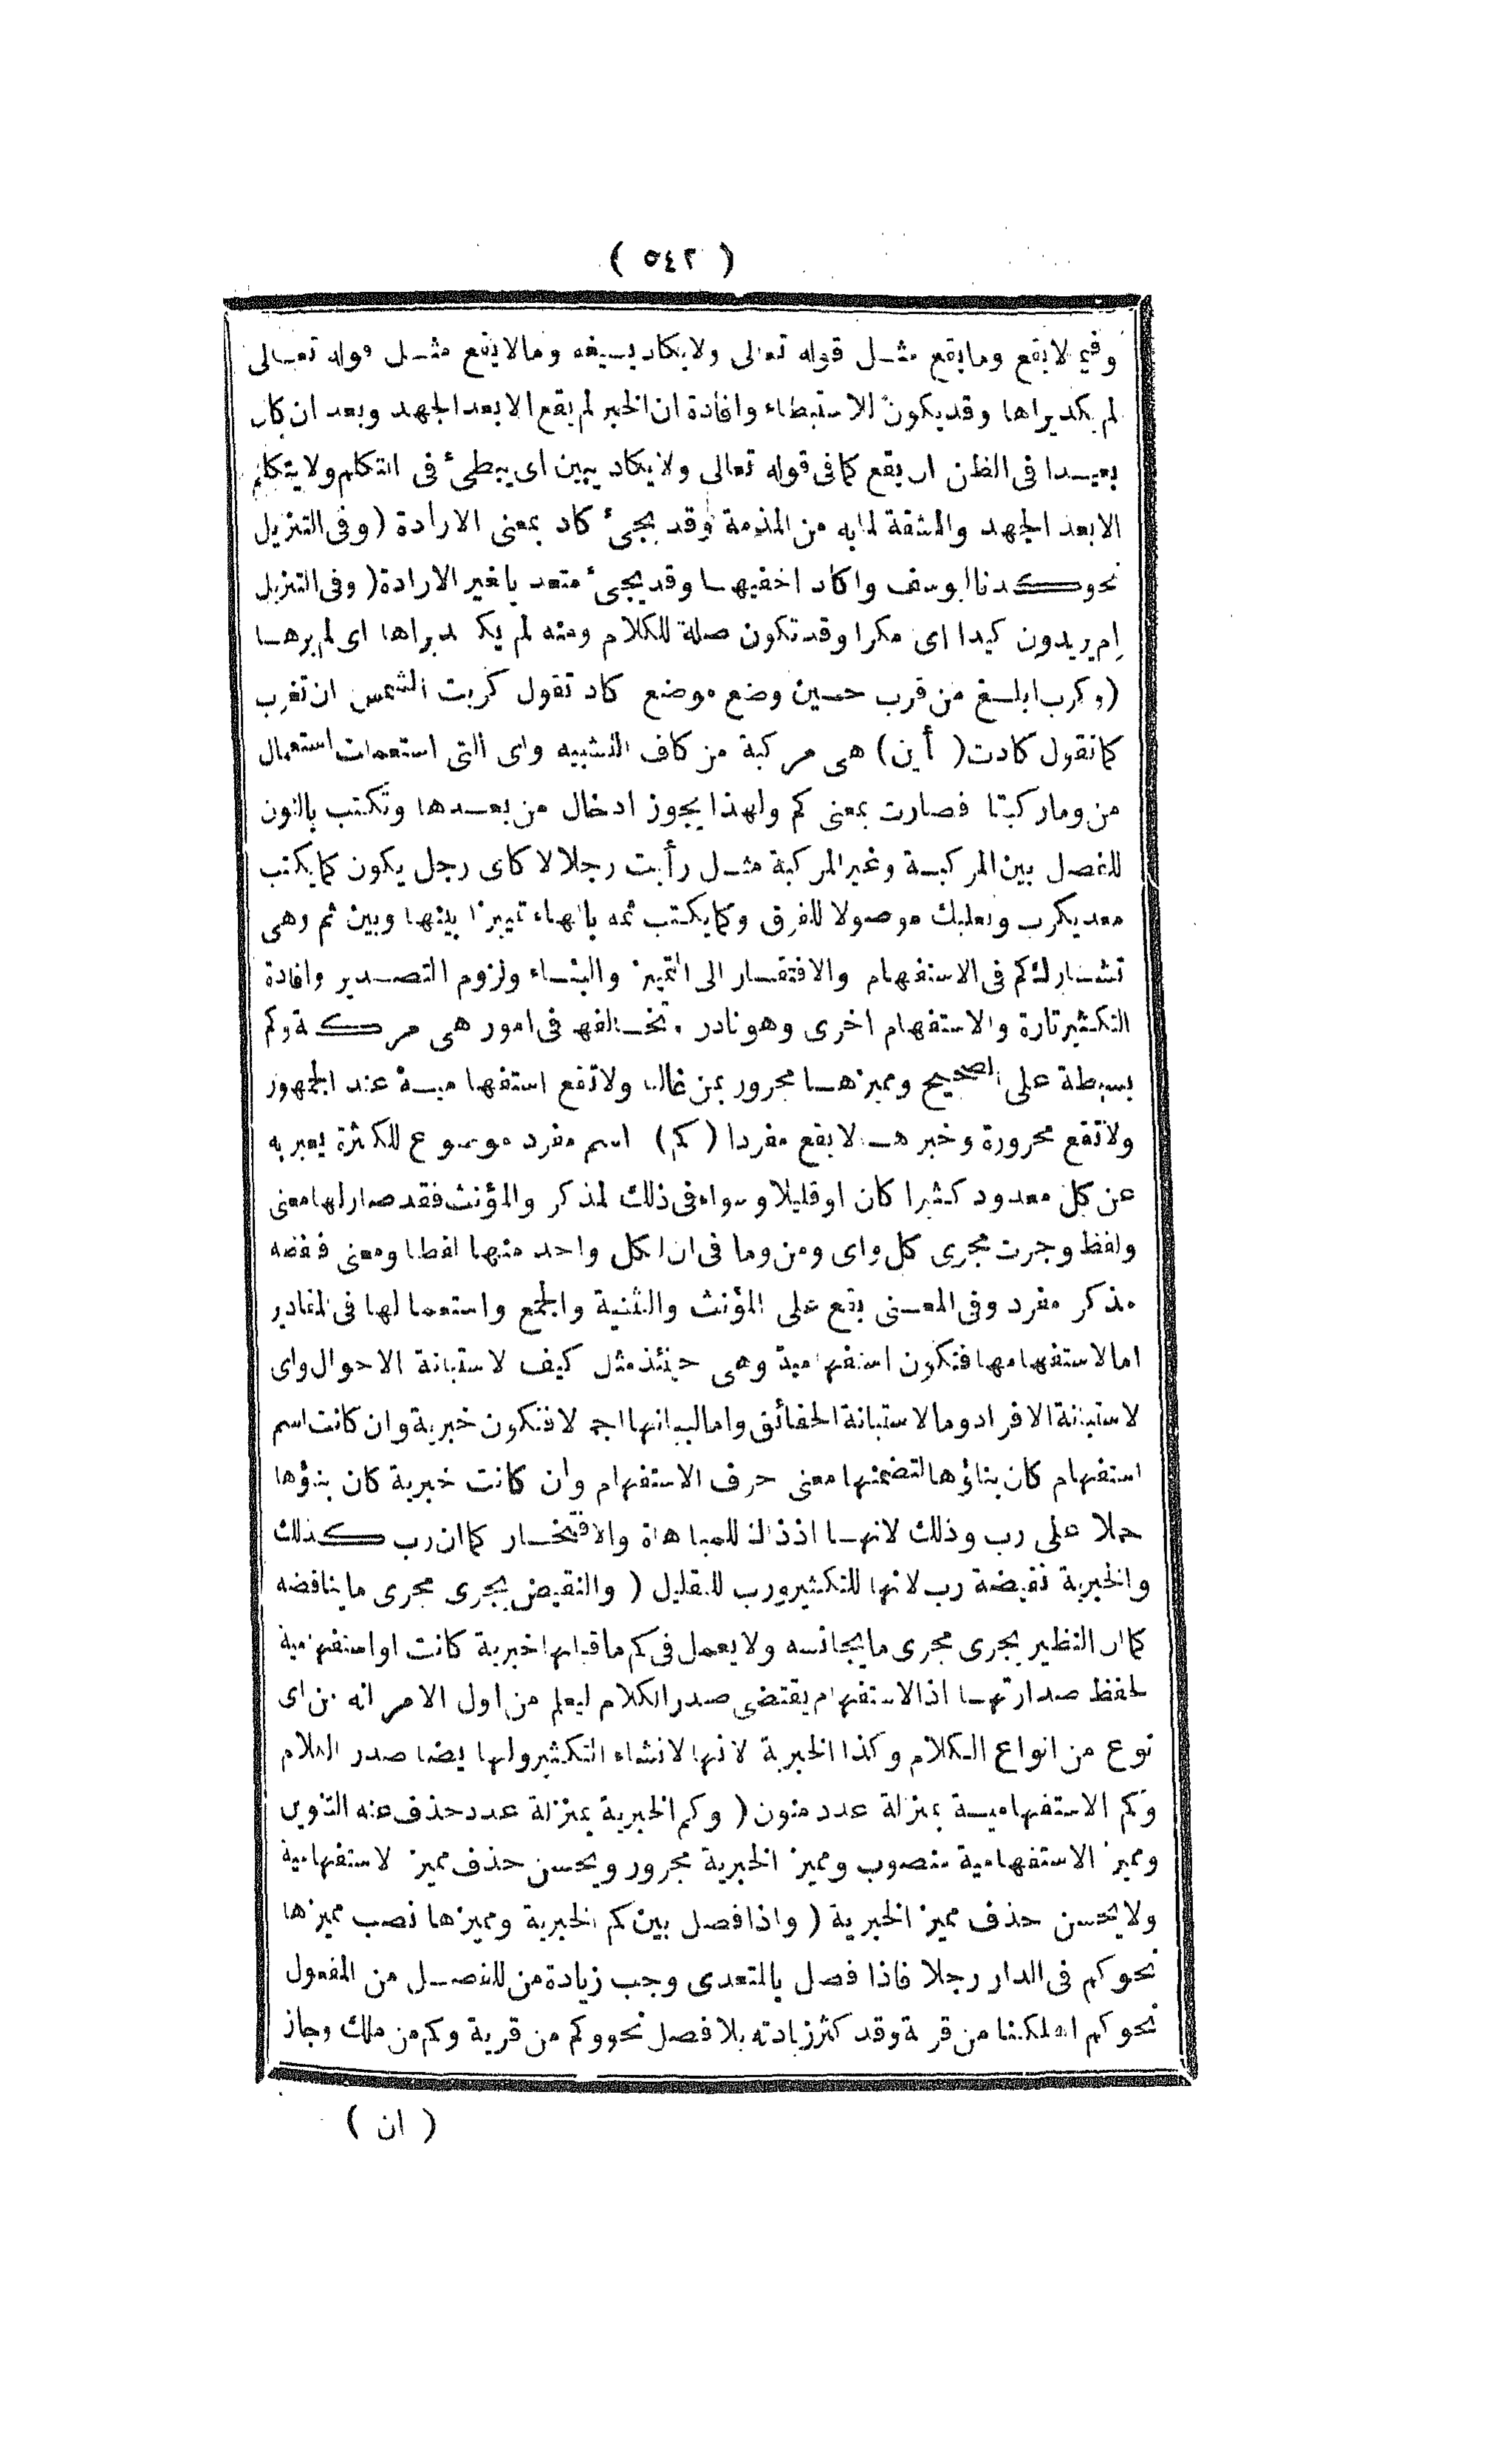 ( ٥٤٢ )
وفيم لايقع ومايقع مثـل قوله تعالى ولايكاد يسيغه ومالايقع مثـل قوله تعـالى
لم يكديراها وقديكون للاستبطاء وافادة ان الخبر لم يقع الابعد الجهد وبعد ان كان
بعيـدا فى الظن ان يقع كمافى قوله تعالى ولايكاد يبين اى يبطئ فى التكلم ولايتكلم
الابعد الجهد والمشقة لمابه من المذمة وقد يجئ كاد بمعنى الارادة ( وفى التنزيل
نحو كدنا ليوسف واكاد اخفيهـا وقديجئ متعد ياغير الارادة ( وفى التنزيل
ام يريدون كيدا اى مكرا وقدتكون صلة للكلام ومنه لم يكد يراها اى لم يرهـا
( وكرب ابلـغ من قرب حين وضع موضع كاد تقول كربت الشمس ان تغرب
كماتقول كادت ( أين ) هى مركبة من كاف التشبيه واى التى استعملت استعمال
من وماركبتا فصارت بمعنى كم ولهذا يجوز ادخال من بعـدها وتكتب بالنون
للفصل بين المركبـة وغير المركبة مثـل رأيت رجلا لاكاى رجل يكون كمايكتب
معديكرب وبعلبك موصولا للفرق وكمايكتب ثمه بالهاء تمييزا بينها وبين ثم وهى
تشـارك كم فى الاستفهام والافتقـار الى التمييز والبنـاء ولزوم التصـدير وافادة
التكثير تارة والاستفهام اخرى وهو نادر وتخـالفها فى امور هى مركبة وكم
بسيطة على الصحيح ومميزهـا مجرور بمن غالبا ولاتقع استفهاميـة عند الجمهور
ولاتقع مجرورة وخبرهـا لايقع مفردا ( كم ) اسم مفرد موضوع للكثرة يعبر به
عن كل معدود كثيرا كان اوقليلا وسواء فى ذلك المذكر والمؤنث فقد صارلها معنى
ولفظ وجرت مجرى كل واى ومن وما فى ان لكل واحد منها لفظا ومعنى فلفظه
مذكر مفرد وفى المعـنى يقع على المؤنث والتثنية والجمع واستعمالها فى المقادير
اما لاستفهامها فتكون استفهامية وهى حينئذ مثل كيف لاستبانة الاحوال واى
لاستبانة الافراد وما لاستبانة الحقائق واما لبيانها اجمالا فتكون خبرية وان كانت اسم
استفهام كان بناؤها لتضمنها معنى حرف الاستفهام وان كانت خبرية كان بناؤها
حملا على رب وذلك لانهـا اذ ذاك للمباهاة والافتخـار كما ان رب كذلك
والخبرية نقيضة رب لانها للتكثير ورب للتقليل ( والنقيض يجرى مجرى مايناقضه
كما ان النظير يجرى مجرى مايجانسه ولا يعمل فى كم ماقبلها خبرية كانت او استفهامية
لحفظ صدارتهـا اذ الاستفهام يقتضى صدر الكلام ليعلم من اول الامر انه من اى
نوع من انواع الكلام وكذا الخبرية لانها لانشاء التكثير ولها ايضا صدر الكلام
وكم الاستفهاميـة بمنزلة عدد منون ( وكم الخبرية بمنزلة عدد حذف عنه التنوين
ومميز الاستفهامية منصوب ومميز الخبرية مجرور ويحسن حذف مميز الاستفهامية
ولايحسن حذف مميز الخبرية ( واذا فصل بين كم الخبرية ومميزها نصب مميزها
نحو كم فى الدار رجلا فاذا فصل بالمتعدى وجب زيادة من للفصـل من المفعول
نحو كم اهلكنا من قرية وقد كثر زيادته بلا فصل نحو وكم من قرية وكم من ملك وجاز
( ان )